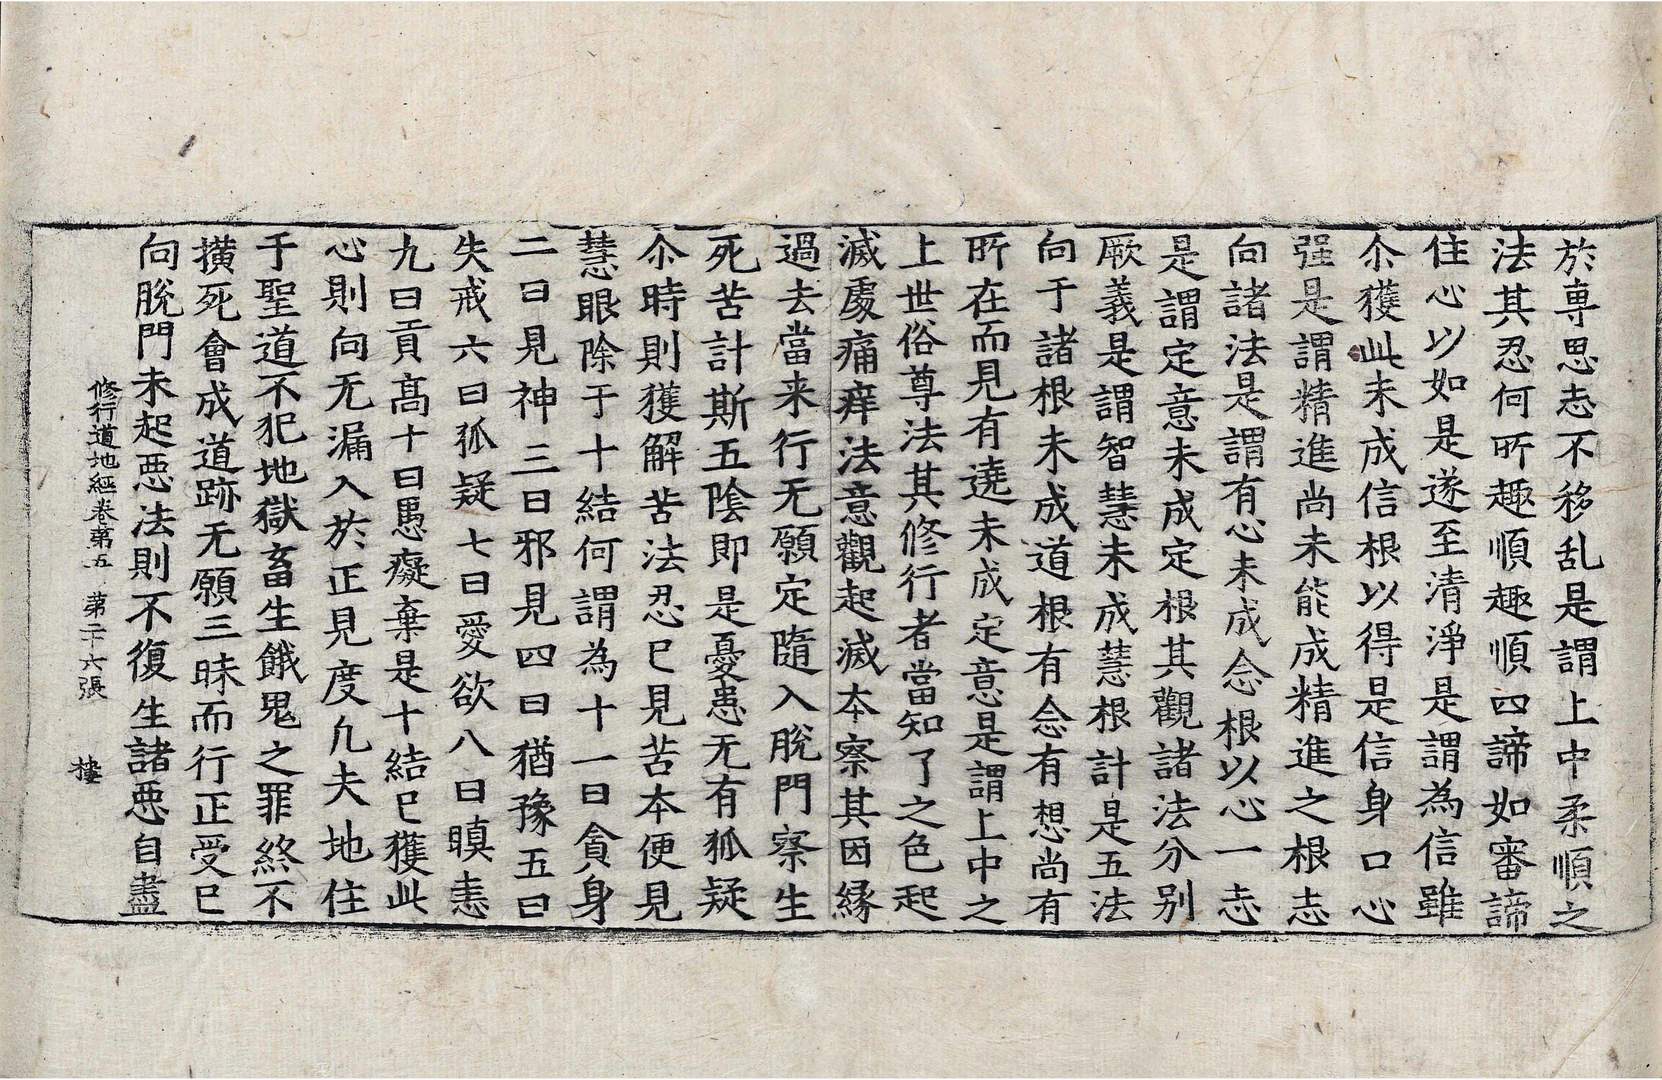 於專思志不移乱是謂上中柔順之
法其忍何所趣順趣順四諦如審諦
住心以如是遂至清淨是謂為信雖
尒獲此未成信根以得是信身口心
强是謂精進尚未能成精進之根志
向諸法是謂有心未成念根以心一志
是謂定意未成定根其觀諸法分別
厥義是謂智慧未成慧根計是五法
向于諸根未成道根有念有想尚有
所在而見有遶未成定意是謂上中之
上世俗尊法其修行者當知了之色起
滅處痛痒法意觀起滅本察其因緣
過去當来行无願定隨入脫門察生
死苦計斯五陰即是憂患无有狐疑
尒時則獲解苦法忍已見苦本便見
慧眼除于十結何謂為十一曰貪身
二曰見神三曰邪見四曰猶豫五曰
失戒六曰狐疑七曰愛欲八曰瞋恚
九曰貢高十曰愚癡棄是十結已獲此
心則向无漏入於正見度凢夫地住
于聖道不犯地獄畜生餓鬼之罪終不
撗死會成道跡无願三昧而行正受已
向脫門未起惡法則不復生諸惡自盡
修行道地經卷第五 第二十六張 樓